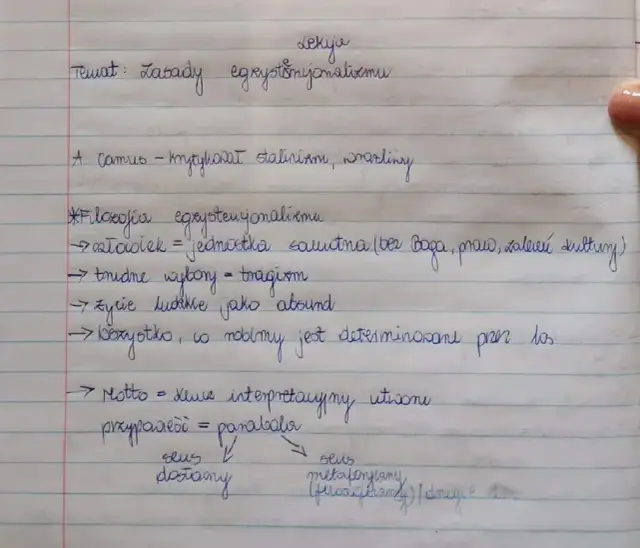 Lekcja
Temat: Zasady egzystencjonalizmu
A Camus - krytykował stalinizm, wrażliwy
*Filozofia egzystencjonalizmu
→ człowiek = jednostka samotna (bez Boga, praw, zaleceń kultury)
→ trudne wybory = tragizm
→ życie ludzkie jako absurd
→ Wszystko, co robimy jest determinowane przez los
→ Motto = klucz interpretacyjny utworu
przypowieść = parabola
sens sens
dosłowny metaforyczny
(filozoficzny) / drugie